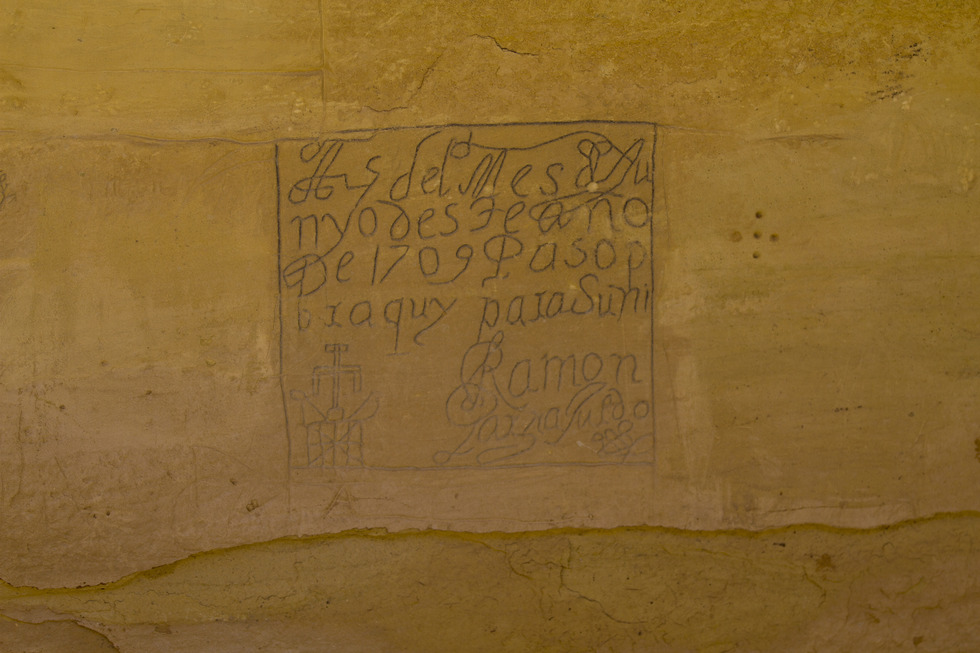 A 25 del Mes de Ju
nyo deste año
De 1709 Paso p
or aquy para Suñi
Ramon
Garzia Jurado